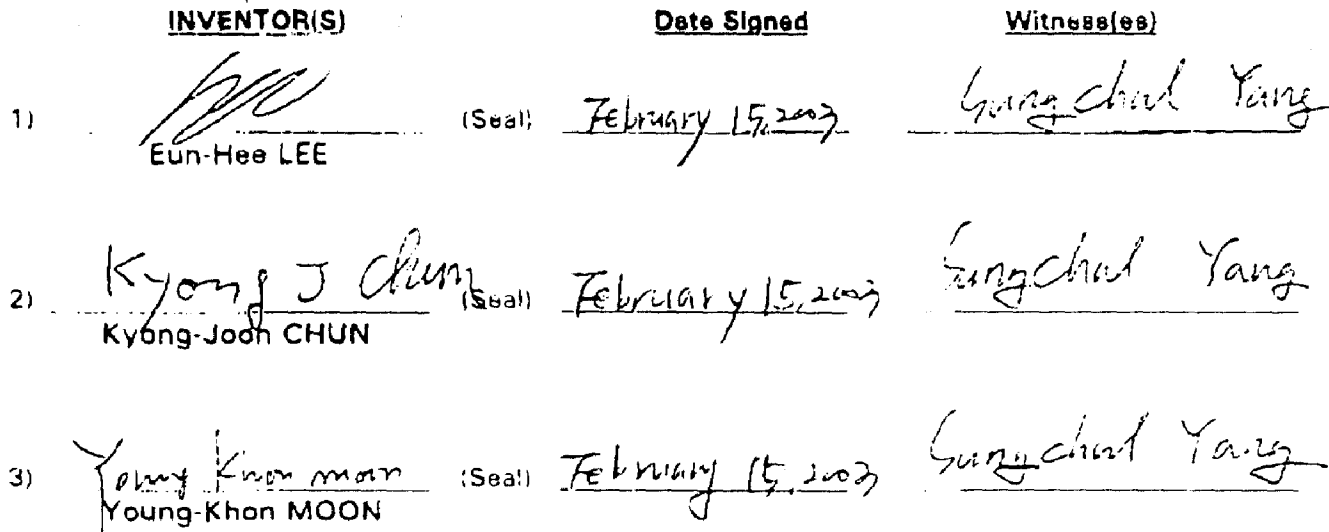 INVENTOR(S) Date Signed Witness(es)
1) (Seal) February 15, 2003 Sungchul Yang
Eun-Hee LEE
2) Kyong J Chun (Seal) February 15, 2003 Sungchul Yang
Kyong-Joon CHUN
3) Young Khon moon (Seal) February 15, 2003 Sungchul Yang
Young-Khon MOON